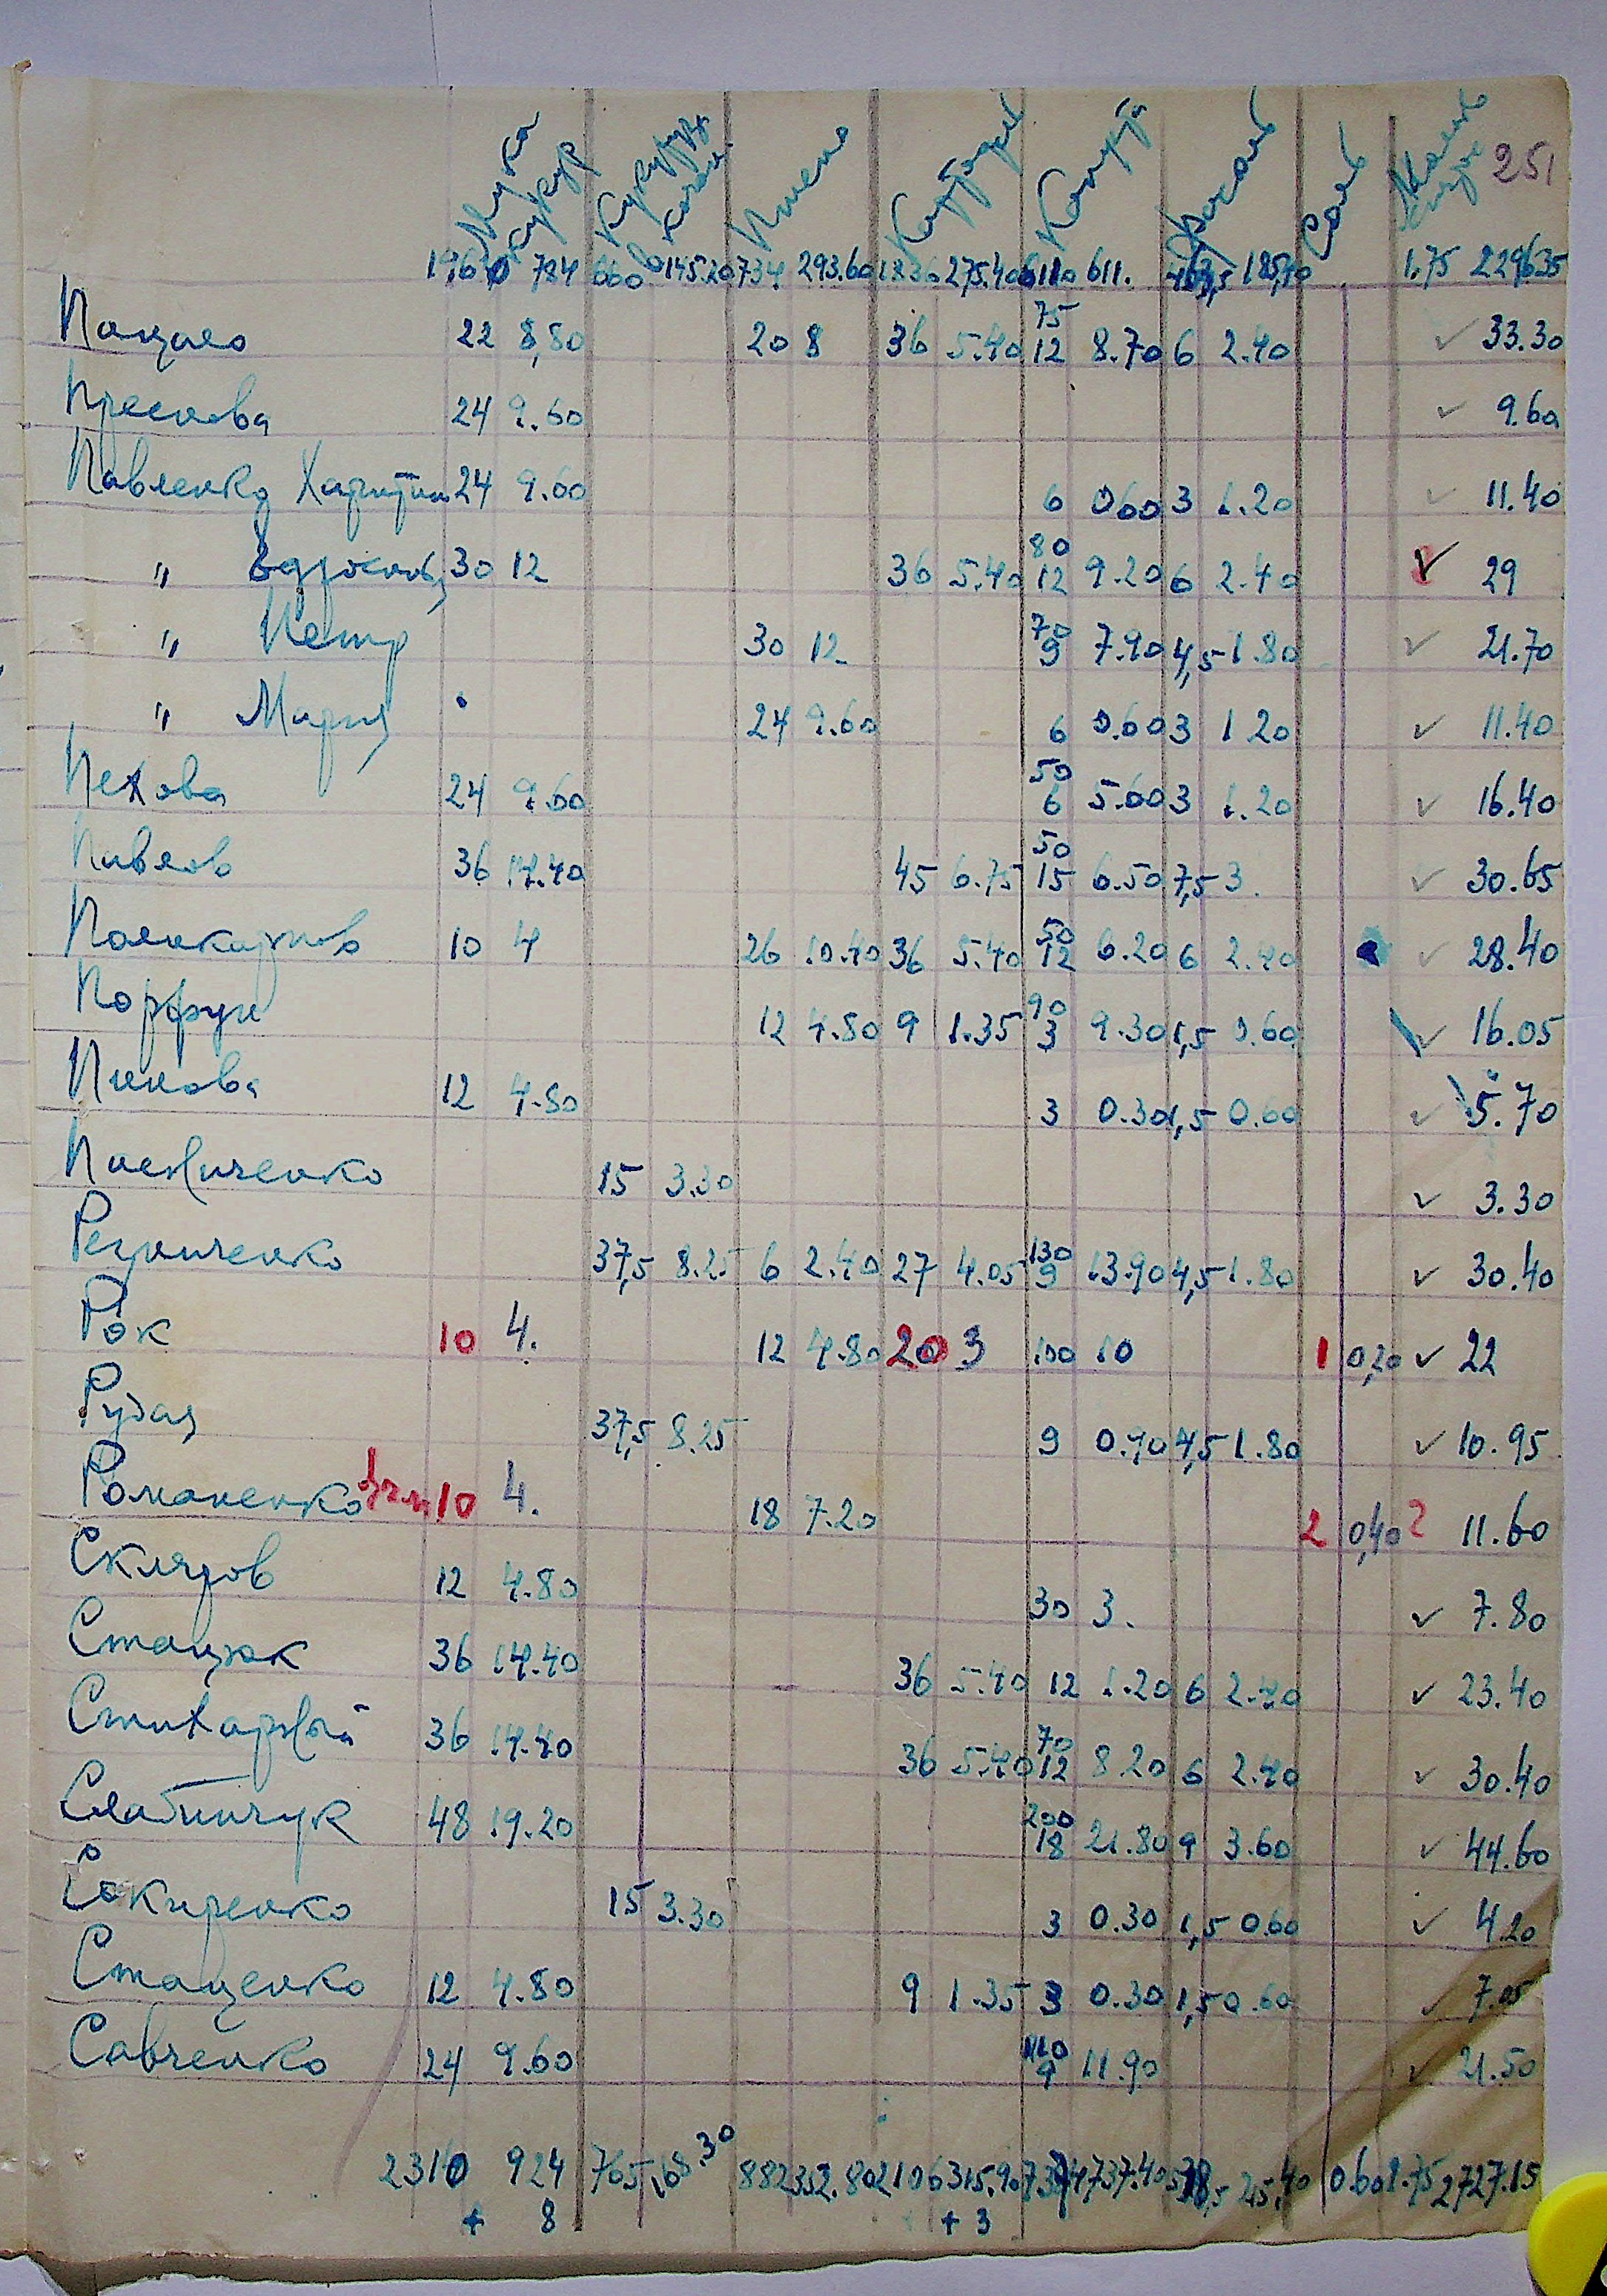 Мука кукур Кукуруза качан. Пшено Картофель Капуста Фасоль Соль 251
1960 784 660 145.20 734 293.60 1836 275.40 6110 611. 463,5 185,40 1.75 2296.35
Пацало 22 8,80 20 8 36 5.40 75 12 8.70 6 2.40 33.30
Преснова 24 9.60 9.60
Павленко Харитон 24 9.60 6 0.60 3 1.20 11.40
" Евдокия 30 12 36 5.40 80 12 9.20 6 2.40 29
" Петр 30 12 70 9 7.90 4,5 1.80 21.70
" Мария 24 9.60 6 0.60 3 1.20 11.40
Пехова 24 9.60 50 6 5.60 3 1.20 16.40
Павлов 36 14.40 45 6.75 50 15 6.50 7,5 3. 30.65
Поликарпов 10 4 26 10.40 36 5.40 50 12 6.20 6 2.40 28.40
Порфун 12 4.80 9 1.35 90 3 9.30 1,5 0.60 16.05
Пинова 12 4.80 3 0.30 1,5 0.60 5.70
15 3.30 3.30
Резниченко 37,5 8.25 6 2.40 27 4.05 130 9 13.90 4,5 1.80 30.40
Рок 10 4. 12 4.80 20 3 100 10 1 0,20 22
Рудая 37,5 8.25 9 0.90 4,5 1.80 10.95
Романенко 10 4. 18 7.20 2 0,40 ? 11.60
Скляров 12 4.80 30 3. 7.80
Стацюк 36 14.40 36 5.40 12 1.20 6 2.40 23.40
Стихарный 36 14.40 36 5.40 70 12 8.20 6 2.40 30.40
Слабинчук 48 19.20 200 18 21.80 9 3.60 44.60
Сокиренко 15 3.30 3 0.30 1,5 0.60 4.20
Стаценко 12 4.80 9 1.35 3 0.30 1,5 0.60 7.05
Савченко 24 9.60 110 9 11.90 21.50
2310 924 765 168.30 882 352.80 2106 315.90 737.40 0.60 1.75 2727.15
+ 8 + 3